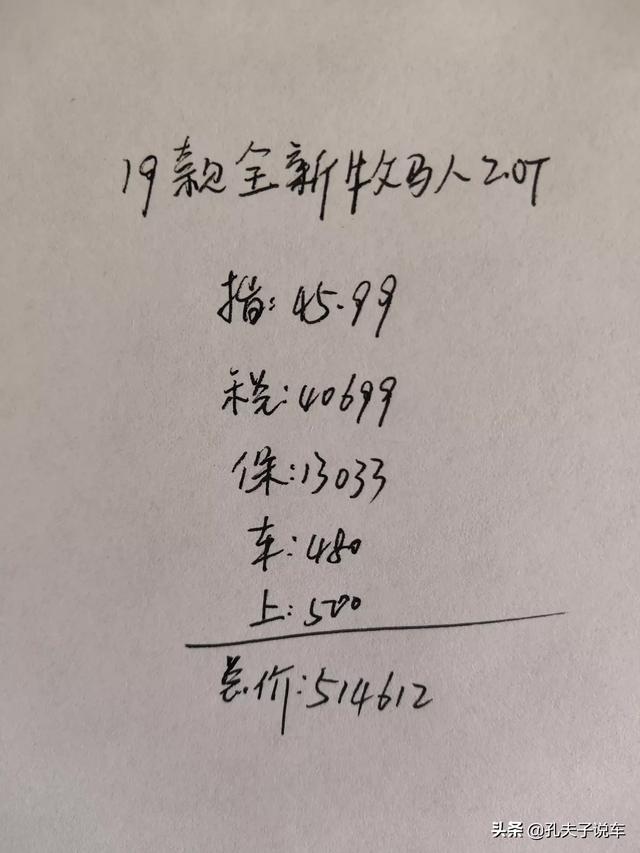 19款全新牧马人2.0T
指:45.99
税:40699
保:13033
车:480
上:500
总价:514612
头条 @孔夫子说车